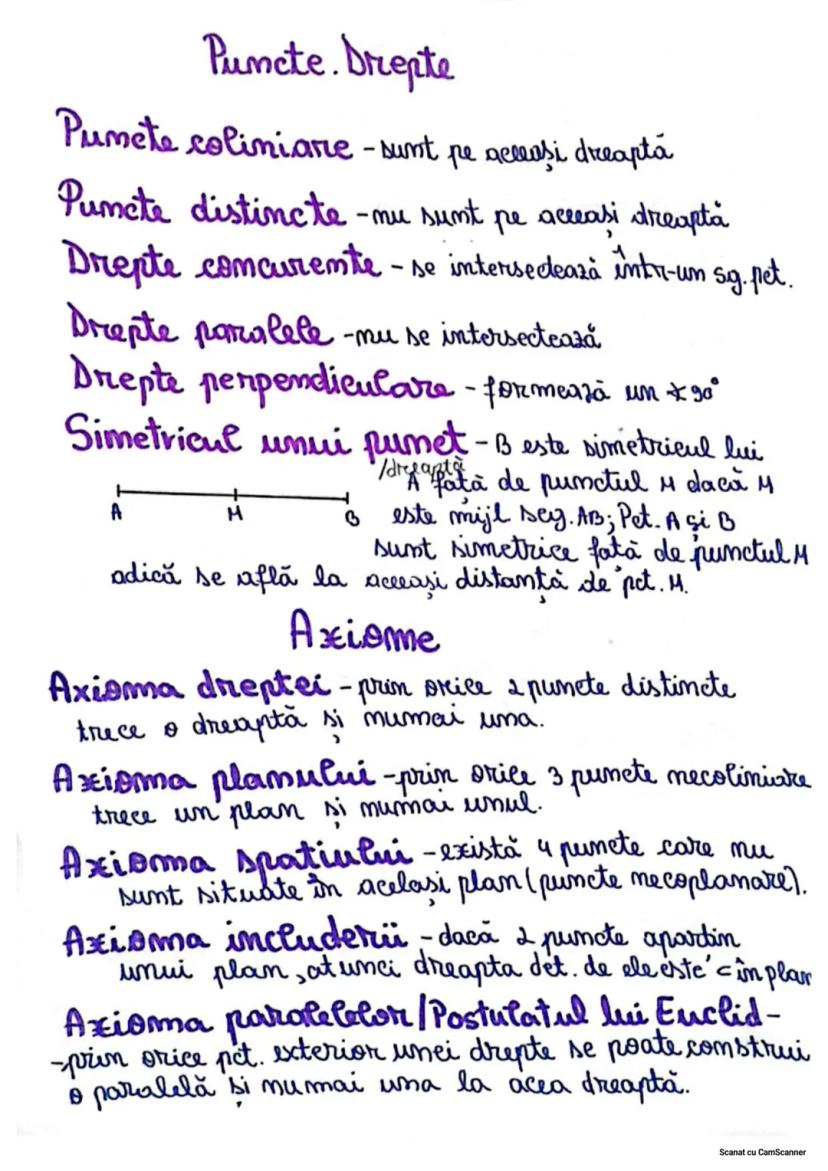 Puncte. Drepte
Puncte coliniare - sunt pe aceeași dreaptă
Puncte distincte - nu sunt pe aceeași dreaptă
Drepte concurente - se intersectează într-un sg. pct.
Drepte paralele - nu se intersectează
Drepte perpendiculare - formează un ∢ 90°
Simetricul unui punct - B este simetricul lui
/dreaptă
A față de punctul M dacă M
este mijl seg. AB; Pct. A și B
A M B
sunt simetrice față de punctul M
adică se află la aceeași distanță de pct. M.
Axiome
Axioma dreptei - prin orice 2 puncte distincte
trece o dreaptă și numai una.
Axioma planului - prin orice 3 puncte necoliniare
trece un plan și numai unul.
Axioma spatiului - există 4 puncte care nu
sunt situate în același plan (puncte necoplanare).
Axioma includerii - dacă 2 puncte aparțin
unui plan, atunci dreapta det. de ele este ⊂ în plan
Axioma paralelelor/Postulatul lui Euclid -
- prin orice pct. exterior unei drepte se poate construi
o paralelă și numai una la acea dreaptă.
Scanat cu CamScanner